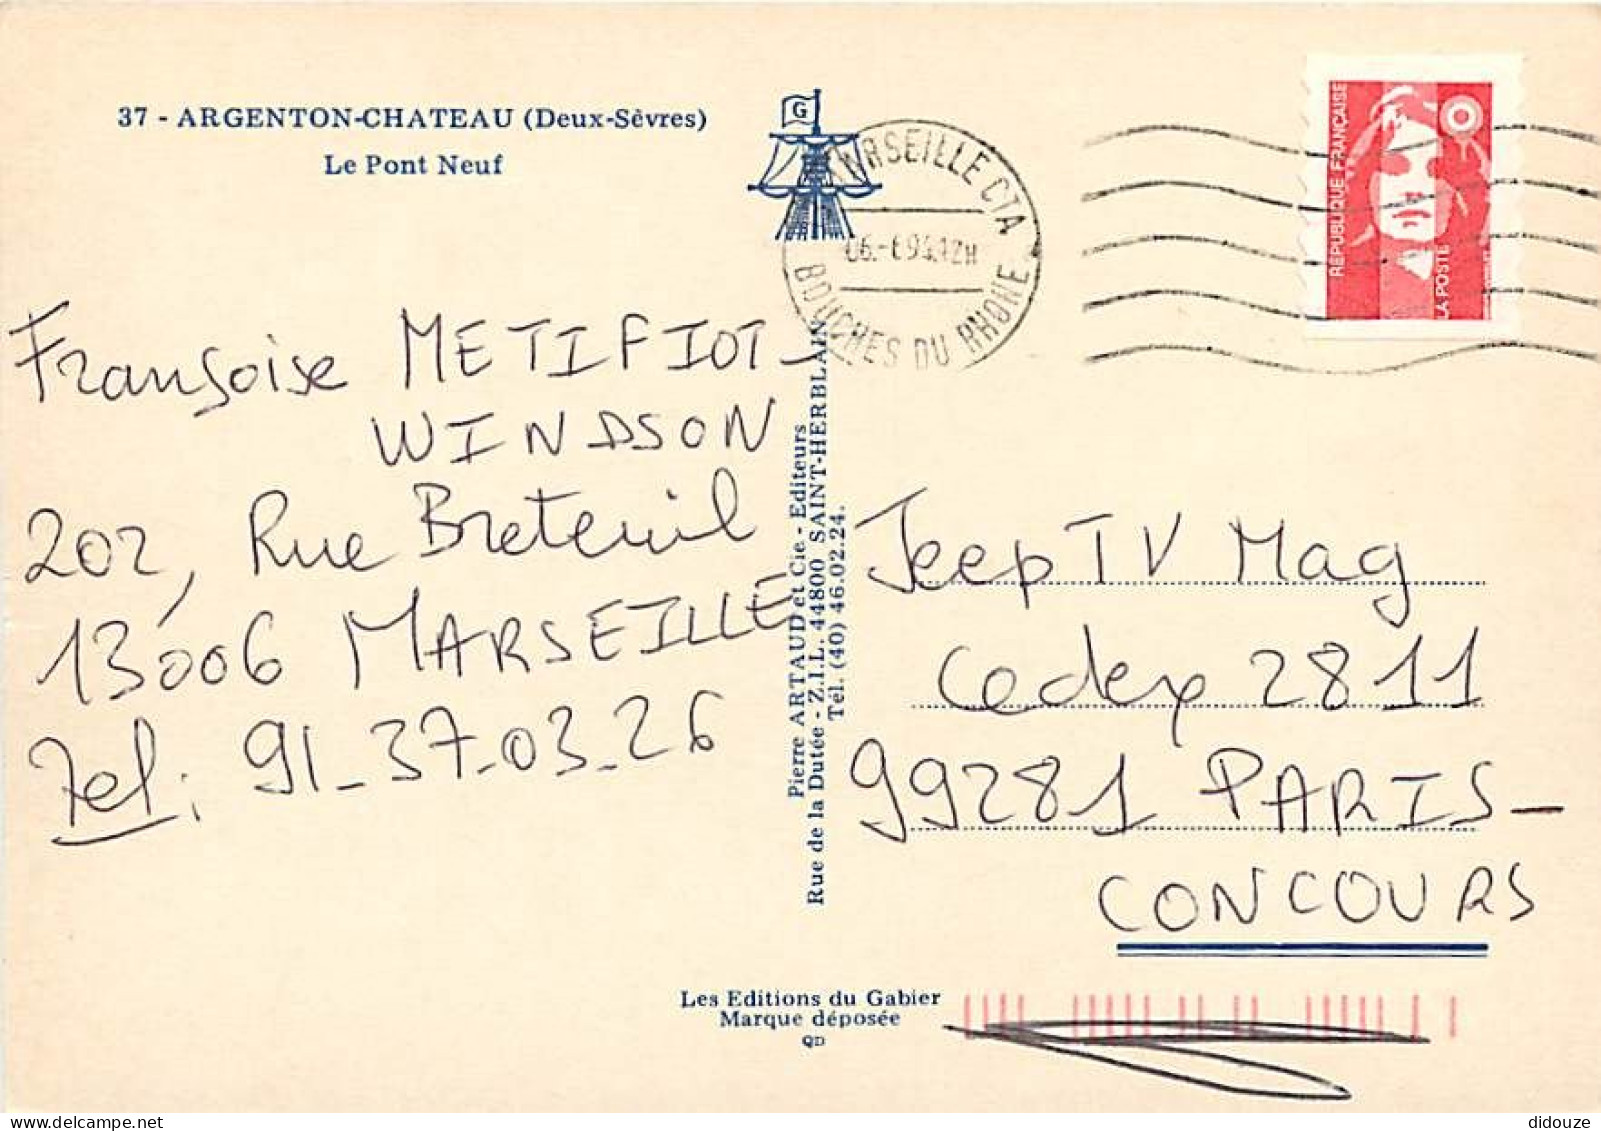 37 - ARGENTON-CHATEAU (Deux-Sèvres)
Le Pont Neuf
G
MARSEILLE CTA
06.-694.12H
BOUCHES DU RHONE
RÉPUBLIQUE FRANÇAISE
LA POSTE
Françoise METIFIOT-
WINDSON
202, Rue Breteuil
13006 MARSEILLE
Tel: 91-37-03-26
Pierre ARTAUD et Cie - Editeurs
Rue de la Dutée - Z.I.L. 44800 SAINT-HERBLAIN
Tél. (40) 46.02.24.
Jeep TV Mag
Cedex 2811
99281 PARIS-
CONCOURS
Les Editions du Gabier
Marque déposée
QD
didouze